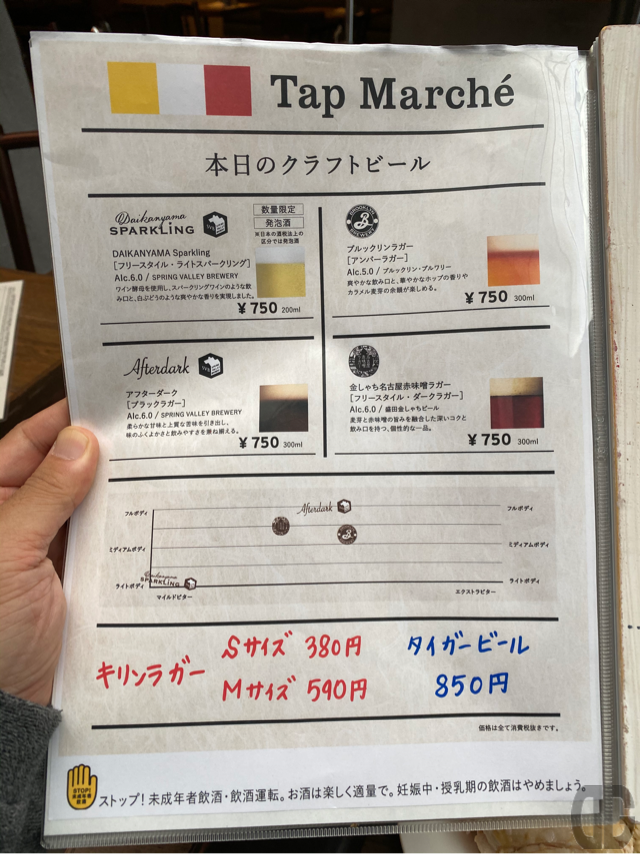 Tap Marché
本日のクラフトビール
Daikanyama
SPARKLING
数量限定
発泡酒
※日本の酒税法上の
区分では発泡酒
DAIKANYAMA Sparkling
[フリースタイル・ライトスパークリング]
Alc.6.0 / SPRING VALLEY BREWERY
ワイン酵母を使用し、スパークリングワインのような飲
み口と、白ぶどうのような爽やかな香りを実現しました。
¥750 200ml
BROOKLYN
BREWERY
ブルックリンラガー
[アンバーラガー]
Alc.5.0 / ブルックリン・ブルワリー
爽やかな飲み口と、華やかなホップの香りや
カラメル麦芽の余韻が楽しめる。
¥750 300ml
Afterdark
アフターダーク
[ブラックラガー]
Alc.6.0 / SPRING VALLEY BREWERY
柔らかな甘味と上質な苦味を引き出し、
味のふくよかさと飲みやすさを兼ね揃える。
¥750 300ml
金しゃち名古屋赤味噌ラガー
[フリースタイル・ダークラガー]
Alc.6.0 / 盛田金しゃちビール
麦芽と赤味噌の旨みを融合した深いコクと
飲み口を持つ、個性的な一品。
¥750 300ml
フルボディ
Afterdark
フルボディ
ミディアムボディ
ミディアムボディ
ライトボディ
Daikanyama
SPARKLING
ライトボディ
マイルドビター
エクストラビター
キリンラガー
Sサイズ 380円
Mサイズ 590円
タイガービール
850円
価格は全て消費税抜きです。
STOP!
ストップ!未成年者飲酒・飲酒運転。お酒は楽しく適量で。妊娠中・授乳期の飲酒はやめましょう。